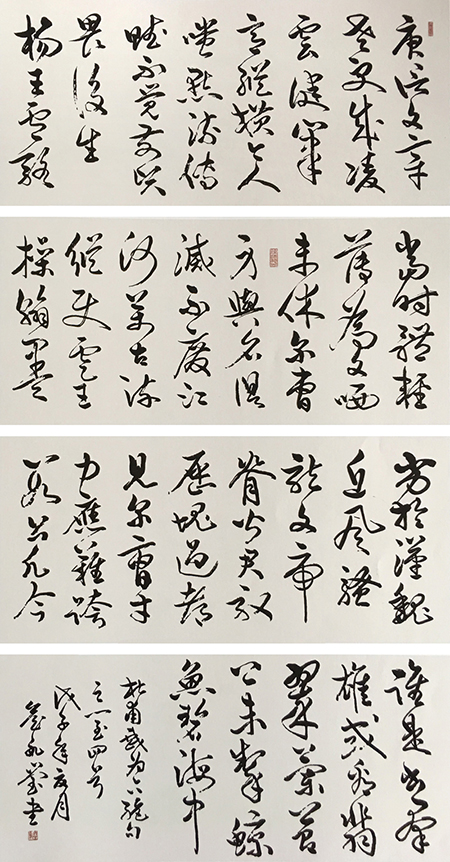 庾信文章
老更成凌
雲健筆
意縱橫今人
嗤點流傳
賦不覺前賢
畏後生
楊王盧駱
當時體輕
薄為文哂
未休爾曹
身與名俱
滅不廢江
河萬古流
縱使盧王
操翰墨
劣於漢魏
近風騷
龍文虎
脊皆君馭
歷塊過都
見爾曹才
力應難跨
數公凡今
誰是出群
雄或看翡
翠蘭苕
上未掣鯨
魚碧海中
杜甫戲為六絕句
之一至四首
戊子年夏月
書